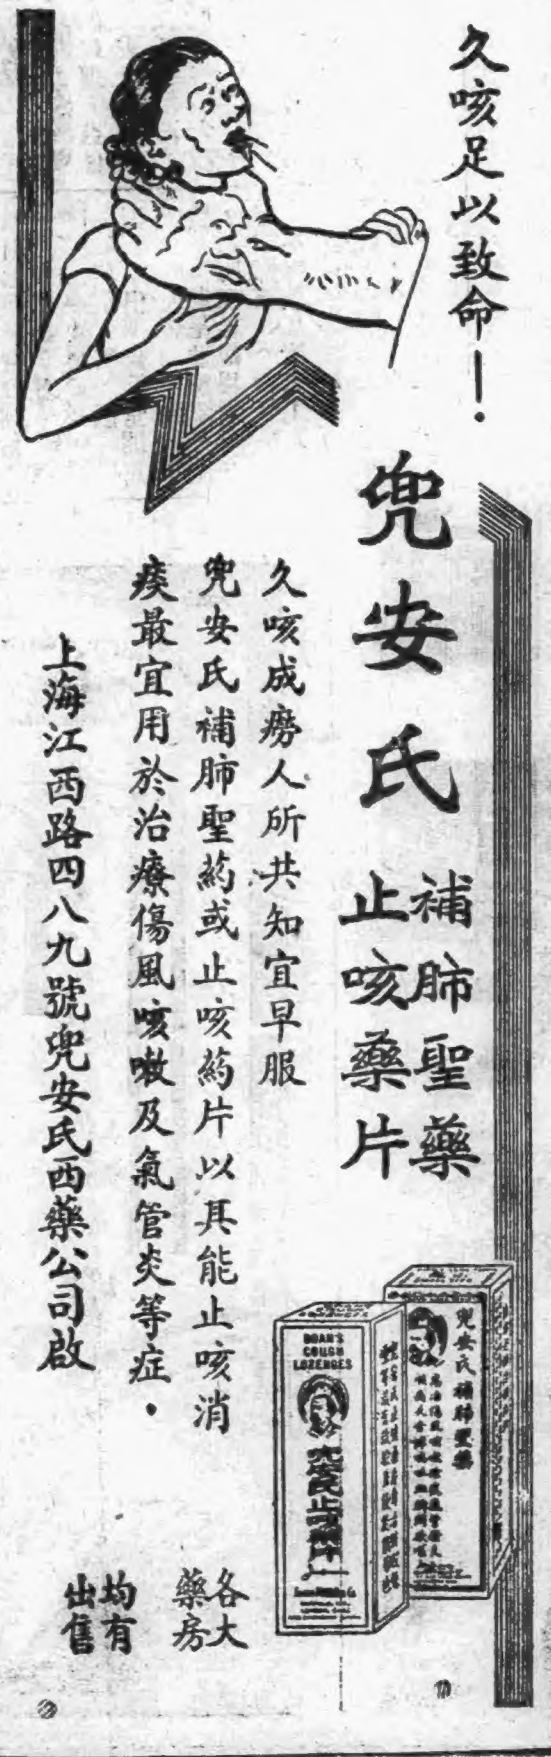 久咳足以致命！
兜安氏
補肺聖藥
止咳藥片
久咳成癆人所共知宜早服
兜安氏補肺聖葯或止咳葯片以其能止咳消
痰最宜用於治療傷風咳嗽及氣管炎等症．
上海江西路四八九號兜安氏西藥公司啟
兜安氏補肺聖藥
DOAN'S
COUGH
LOZENGES
兜安氏止咳藥片
各大
藥房
均有
出售